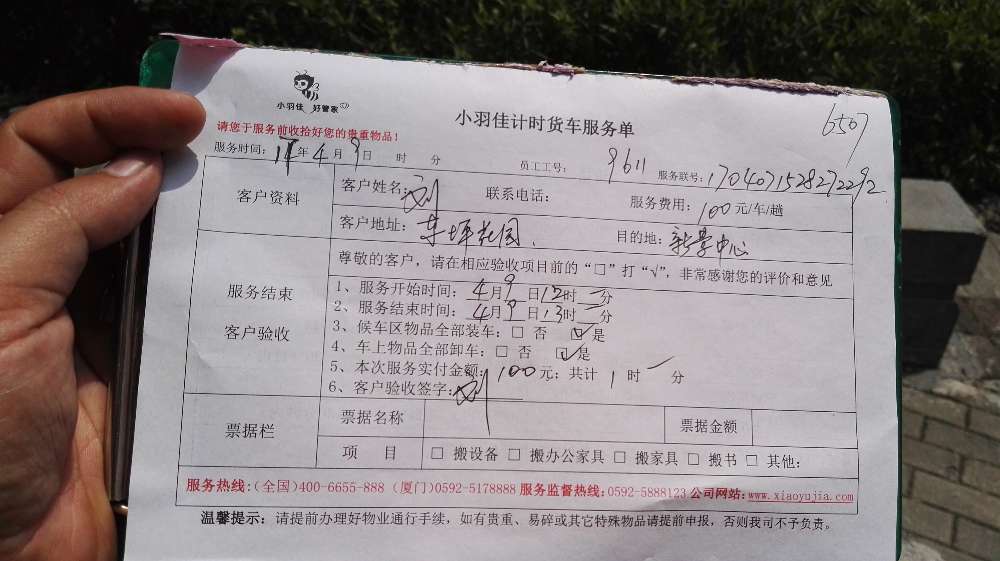 6507
小羽佳 好管家
小羽佳计时货车服务单
请您于服务前收拾好您的贵重物品！
服务时间: 17年4月9日 时 分 员工工号: 9611 服务联号: 1704071528272292
客户资料
客户姓名: 刘 联系电话: 服务费用: 100元/车/趟
客户地址: 东坪花园、 目的地: 新景中心
服务结束
客户验收
尊敬的客户，请在相应验收项目前的“□”打“√”，非常感谢您的评价和意见
1、服务开始时间: 4月9日12时 分
2、服务结束时间: 4月9日13时 分
3、候车区物品全部装车: □ 否 ☑是
4、车上物品全部卸车: □ 否 ☑是
5、本次服务实付金额: 100元; 共计 1 时 分
6、客户验收签字: 刘
票据栏
票据名称 票据金额
项 目 □ 搬设备 □ 搬办公家具 □ 搬家具 □ 搬书 □ 其他:
服务热线: (全国)400-6655-888 (厦门)0592-5178888 服务监督热线: 0592-5888123 公司网站: www.xiaoyujia.com
温馨提示: 请提前办理好物业通行手续，如有贵重、易碎或其它特殊物品请提前申报，否则我司不予负责。